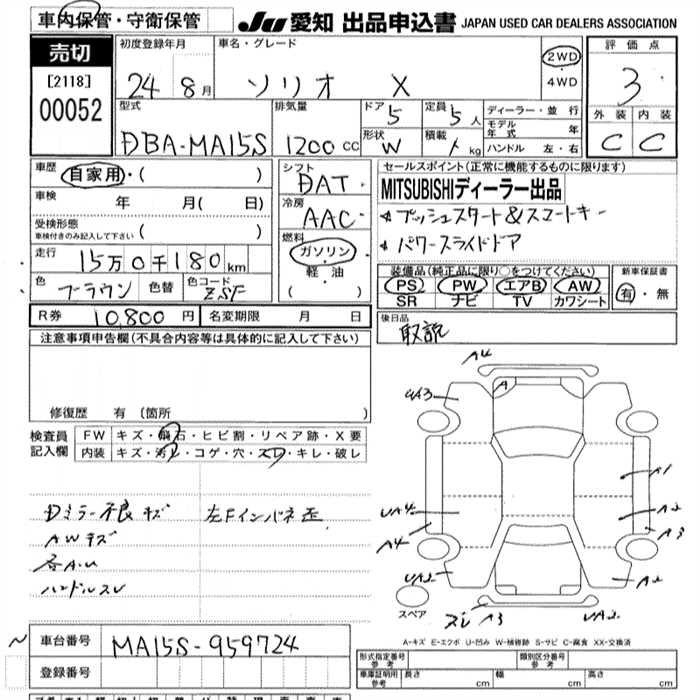 車内保管・守衛保管 JU 愛知 出品申込書 JAPAN USED CAR DEALERS ASSOCIATION
売切
[2118]
00052
初度登録年月
24年 8月
車名・グレード
ソリオ X
2WD
4WD
評価点
3
外装 内装
C C
型式
DBA-MA15S
排気量
1200 CC
ドア
5
形状
W
定員
5人
積載
kg
ディーラー・並行
モデル年式 年
ハンドル 左・右
車歴
自家用・( )
車検
年 月( 日)
受検形態
車検付きのみ記入して下さい ( )
走行
15万0千180km
色
ブラウン 色替 色コード ZSF
シフト
DAT
冷房
AAC
燃料
ガソリン
軽油
( )
セールスポイント(正常に機能するものに限ります)
MITSUBISHIディーラー出品
プッシュスタート&スマートキー
パワースライドドア
装備品(純正品に限り○をつけてください)
PS PW エアB AW
SR ナビ TV カワシート
新車保証書
有・無
R券 10,800円 名変期限 月 日
後日品
取説
注意事項申告欄(不具合内容等は具体的に記入して下さい)
修復歴 有(箇所 )
検査員記入欄
FW キズ・飛石・ヒビ割・リペア跡・X要
内装 キズ・汚レ・コゲ・穴・スレ・キレ・破レ
Dミラー不良キズ 左Fインパネ歪
AWキズ
各A.U
ハンドルスレ
A4
UA3
A
A1
UA4
A2
A4
A3
UA2
A2
スレ A3
UA2
スペア
A-キズ E-エクボ U-凹み W-補修跡 S-サビ C-腐食 XX-交換済
車台番号 MA15S-959724
登録番号
形式指定番号 参考
類別区分番号 参考
車庫証明用 参考 長さ cm 幅 cm 高さ cm